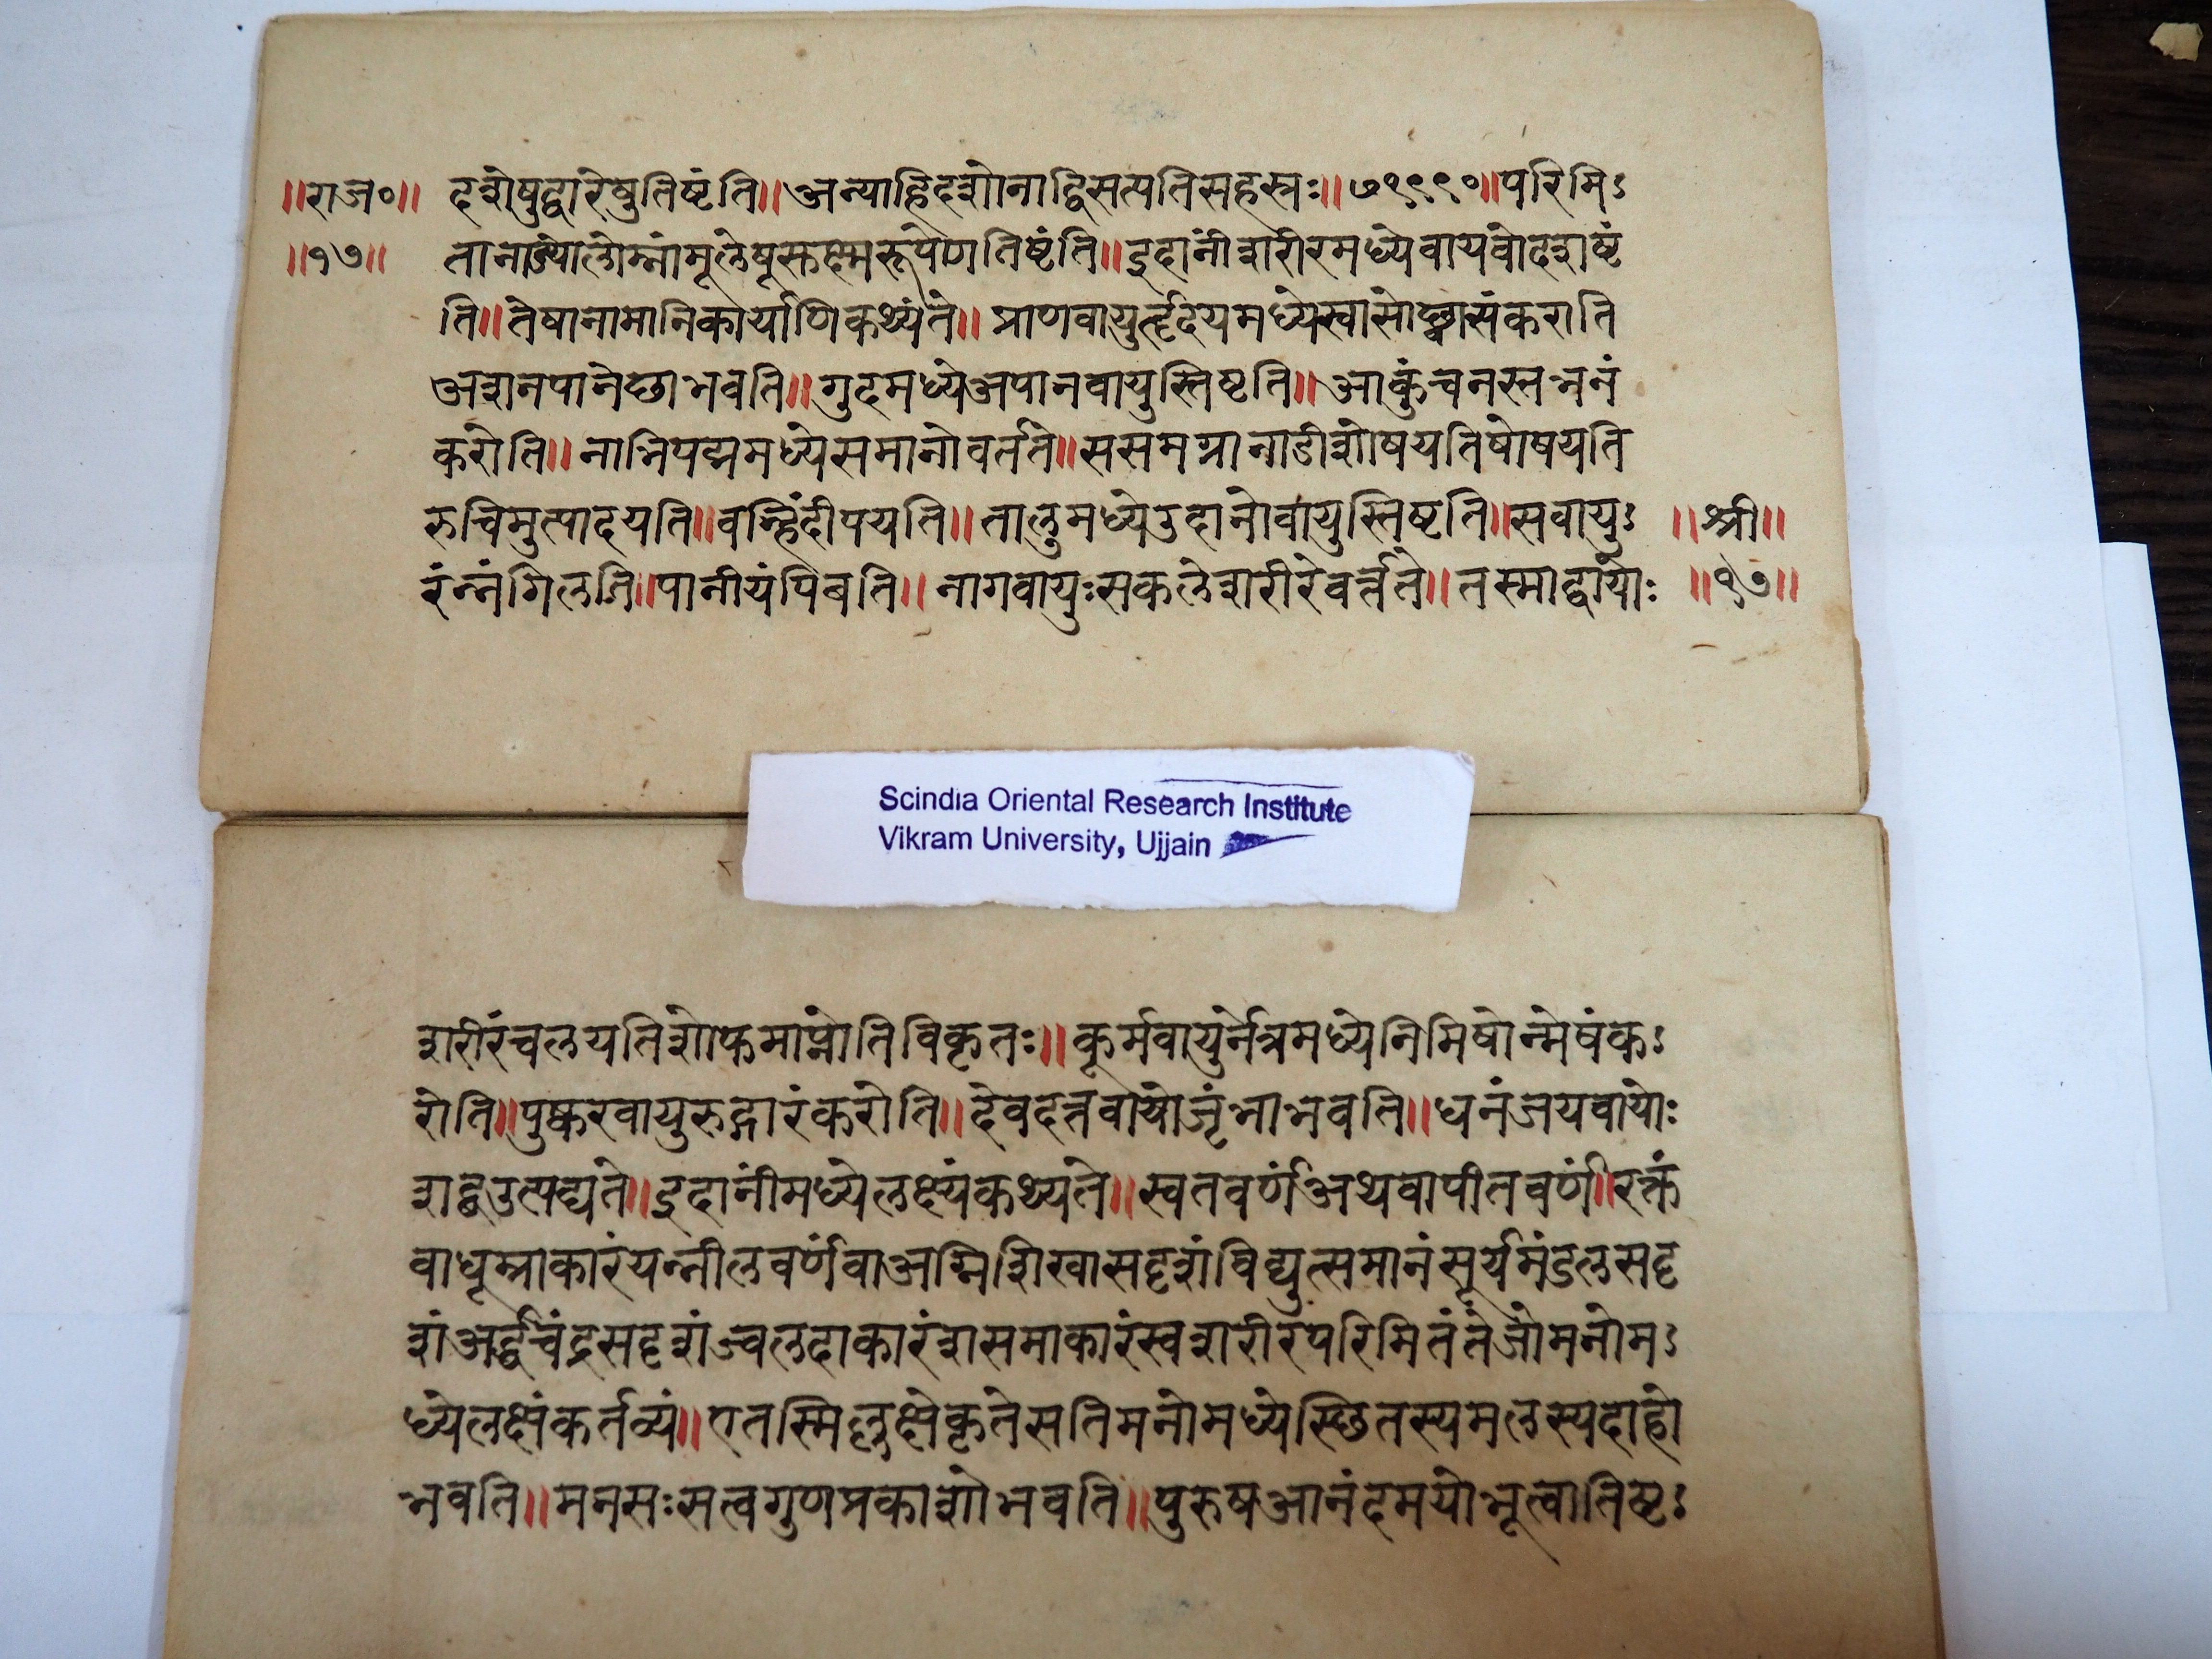 ॥राज०॥ दशेषुद्वारेषुतिष्टंति॥अन्याद्विदशोनाद्विसत्पतिसहस्त्रः॥७१९९०॥परिमिऽ
॥१७॥ तानाड्योलोम्नांमूलेषूस्तक्ष्मरूपेणतिष्टंति॥इदानींशरीरमध्येवायवोदशष्टं
ति॥तेषानामानिकार्याणिकथ्यंते॥प्राणवायुर्त्दृदयमध्येस्वासोछ्वासंकराति
अशनपानेछाभवति॥गुदमध्येअपानवायुस्तिष्टति॥आकुंचनस्तभननं
करोति॥नाभिपद्ममध्येसमानोवर्तते॥ससमग्रानाडीशोषयतिषोषयति
रुचिमुत्पादयति॥वन्हिंदीपयति॥तालुमध्येउदानोवायुस्तिष्टति॥सवायुऽ ॥श्री॥
रंन्नंगिलति॥पानीयंपिबति॥नागवायुःसकलेशरीरेवर्त्तते॥तस्माद्वायोः ॥१७॥
Scindia Oriental Research Institute
Vikram University, Ujjain
शरीरंचलयतिशोफमाप्नोतिविकृतः॥कूर्मवायुर्नेत्रमध्येनिमिषोन्मेषंकऽ
रोति॥पुष्करवायुरुद्गारंकरोति॥देवदत्तवायोजृंभाभवति॥धनंजयवायोः
शद्वउत्पद्यते॥इदानींमध्येलक्ष्यंकथ्यते॥स्वतवर्णंअथवापीतवर्णं॥रक्तं
वाधूम्राकारंयन्नीलवर्णंवाअग्निशिखासदृशंविद्युत्समानंसूर्यमंडलसदृ
शंअर्द्धचंद्रसदृशंज्वलदाकारंशसमाकारंस्वशरीरंपरिमितंतेजोमनोमऽ
ध्येलक्षंकर्तव्यं॥एतस्मिल्लक्षेकृतेसतिमनोमध्येस्छितस्यमलस्यदाहो
भवति॥मनसःसत्वगुणप्रकाशोभवति॥पुरुषआनंदमयोभूत्वातिष्टऽ